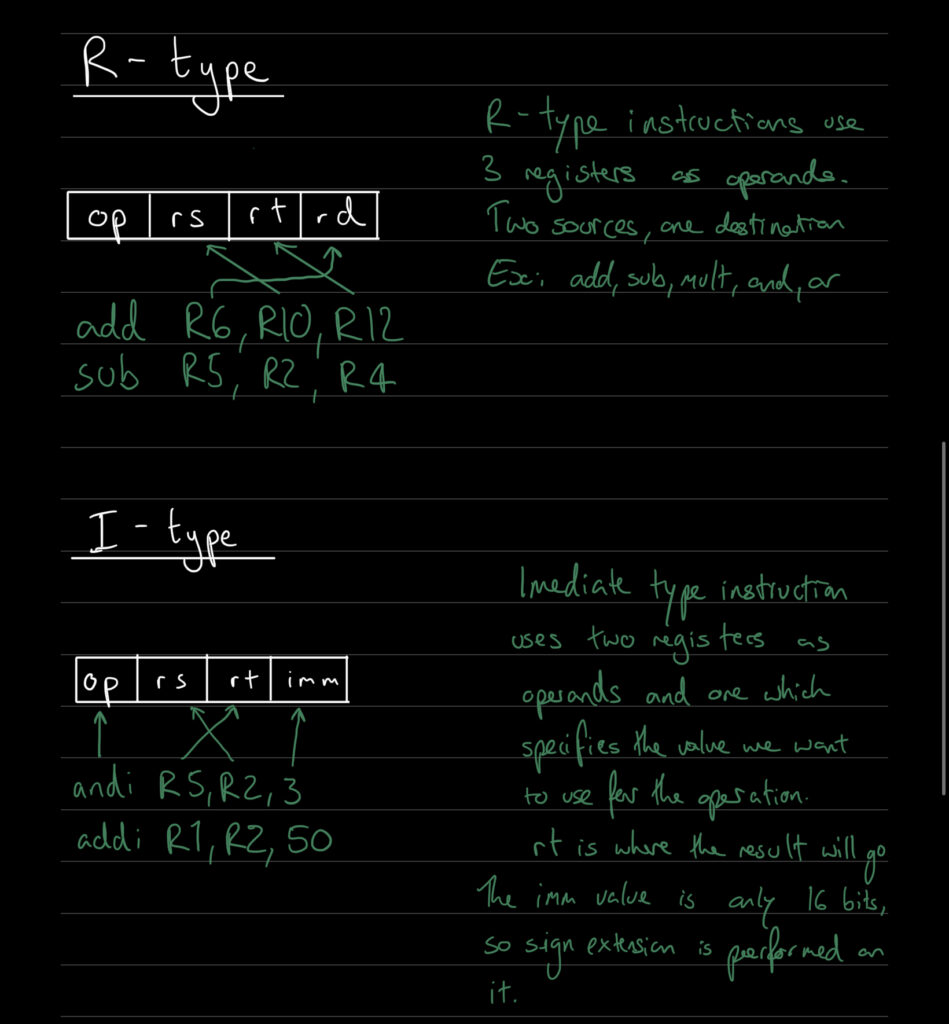 R - type
R - type instructions use
3 registers as operands.
Two sources, one destination
Ex: add, sub, mult, and, or
op rs rt rd
add R6, R10, R12
sub R5, R2, R4
I - type
Imediate type instruction
uses two registers as
operands and one which
specifies the value we want
to use for the operation.
rt is where the result will go
The imm value is only 16 bits,
so sign extension is performed on
it.
op rs rt imm
andi R5, R2, 3
addi R1, R2, 50